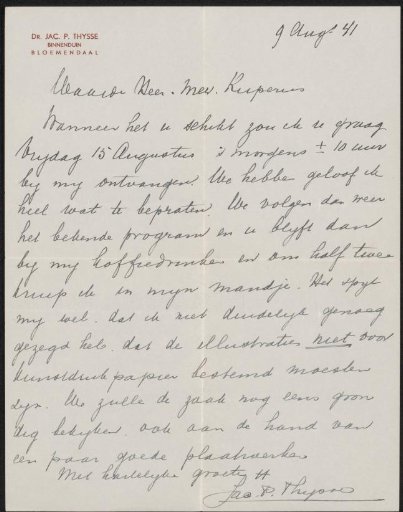 DR. JAC. P. THYSSE
BINNENDUIN
BLOEMENDAAL
9 Augs 41
Waarde Heer. Mev. Kuperus
Wanneer het u schikt zou ik u graag
Vrydag 15 Augustus 's morgens ± 10 uur
by my ontvangen. We hebben geloof ik
heel wat te bepraten. We volgen dan weer
het bekende program en u blyft dan
by my koffiedrinken en om half twee
kruip ik in myn mandje. Het spyt
my wel. dat ik niet duidelyk genoeg
gezegd heb. dat de illustraties niet voor
kunstdruk papier bestemd moesten
zyn. We zulle de zaak nog eens gron
dig bekyken. ook aan de hand van
een paar goede plaatwerken
Met hartelyke groeten
Jac. P. Thysse